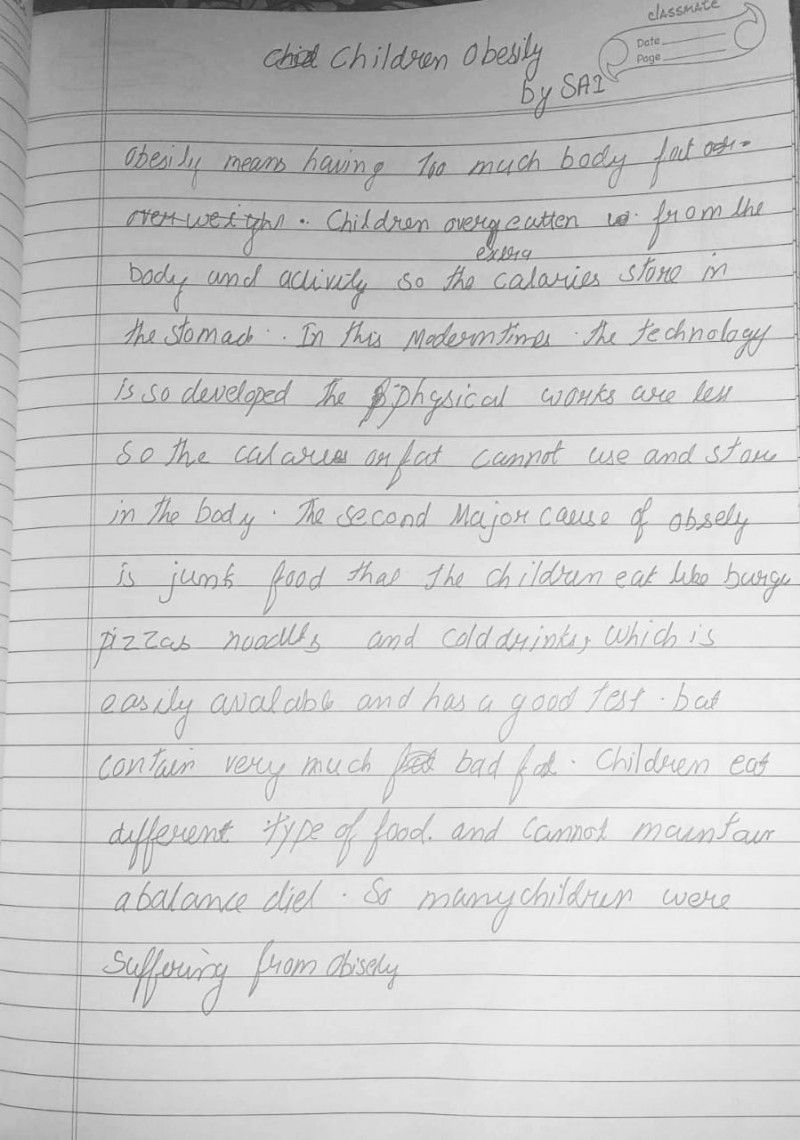 classmate
Date
Page
Children Obesity
by SAI
Obesity means having Too much body fat
over weight . Children overeatten from the
extra
body and activity so the calaries store in
the stomac . In this Moderntimes the technology
is so developed the physical works are less
so the calaries or fat cannot use and store
in the body . The second Major cause of obsely
is junk food that the children eat like burge
pizzas noodles and cold drinks, which is
easily avalable and has a good test . but
contain very much bad fat . Children eat
different type of food. and cannot maintain
a balance diet . So many children were
suffering from Obisely